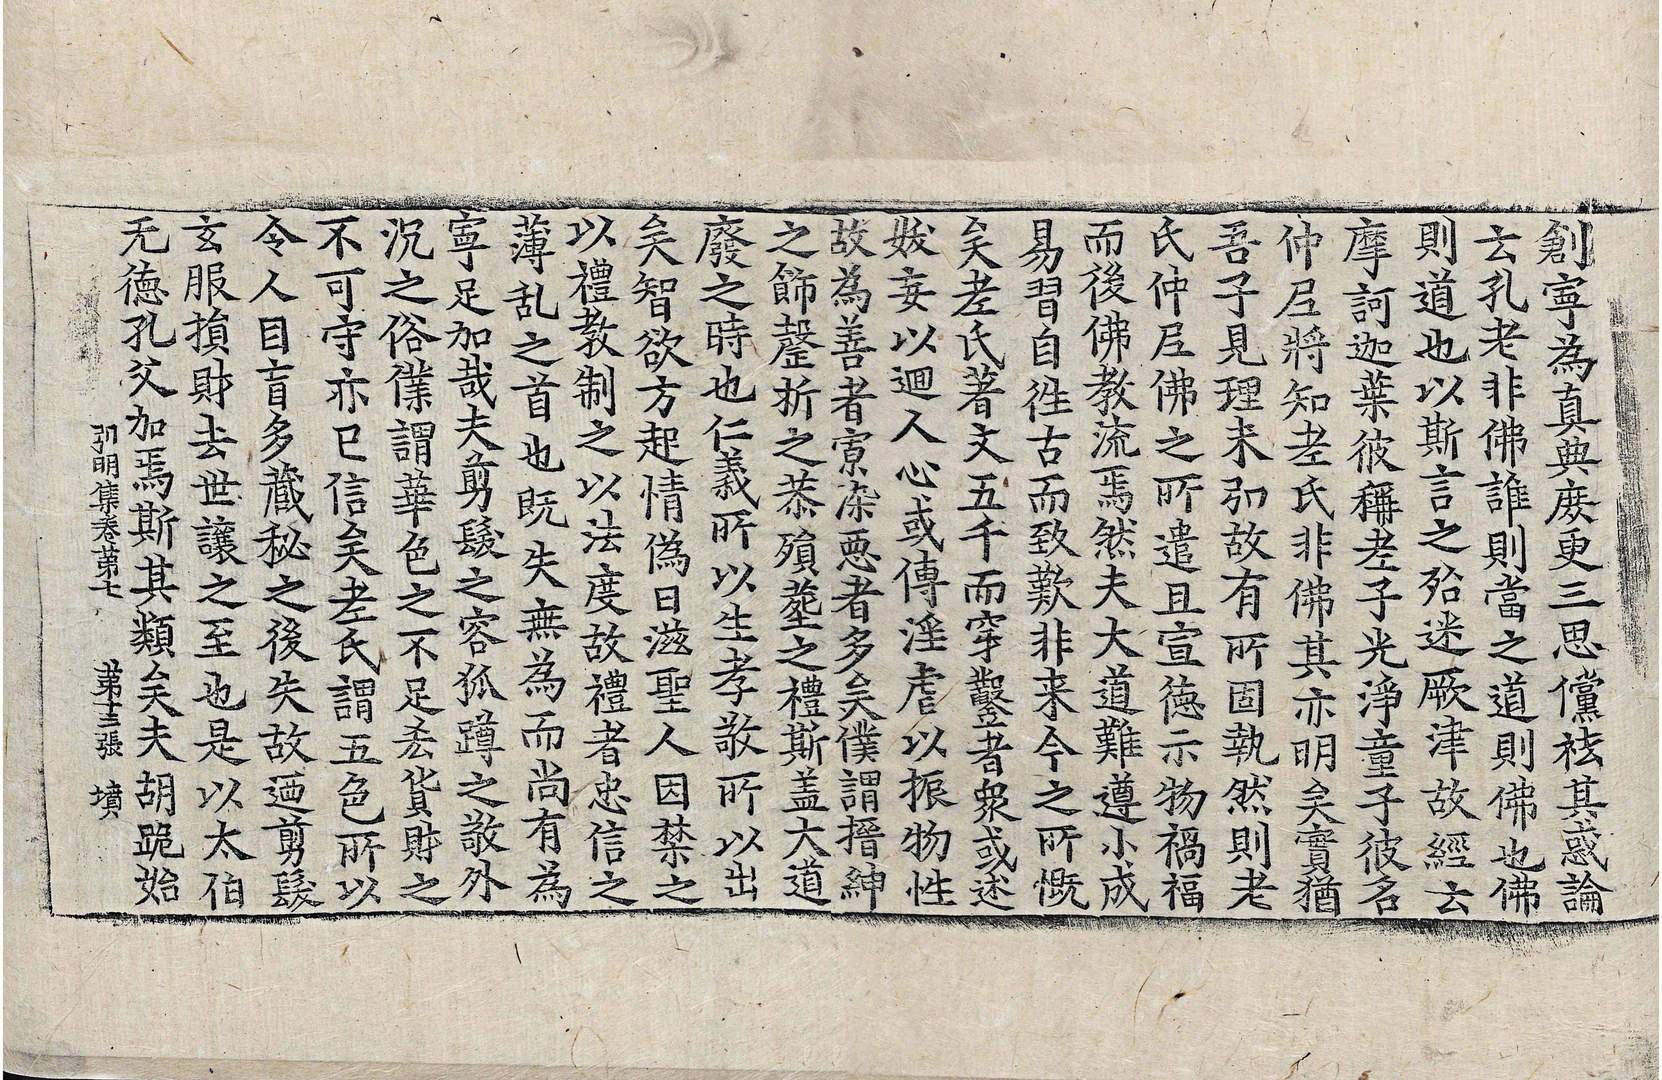 創寧為真典庻更三思儻袪其惑論
云孔老非佛誰則當之道則佛也佛
則道也以斯言之殆迷厥津故經云
摩訶迦葉彼稱老子光淨童子彼名
仲尼將知老氏非佛其亦明矣實猶
吾子見理未弘故有所固執然則老
氏仲尼佛之所遣且宣徳示物禍福
而後佛教流焉然夫大道難遵小成
易習自往古而致歎非来今之所慨
矣老氏著文五千而穿鑿者衆或述
妖妄以迴人心或傳淫虐以振物性
故為善者寡染惡者多矣僕謂搢紳
之飾罄折之恭殞葬之禮斯盖大道
廢之時也仁義所以生孝敬所以出
矣智欲方起情偽日滋聖人因禁之
以禮教制之以法度故禮者忠信之
薄乱之首也既失無為而尚有為
寧足加哉夫剪髮之容狐蹲之敬外
沉之俗僕謂華色之不足丟貨財之
不可守亦已信矣老氏謂五色所以
令人目盲多藏秘之後失故迺剪髮
玄服損財去世讓之至也是以太伯
无德孔父加焉斯其類矣夫胡跪始
弘明集卷第七 第十三張 墳